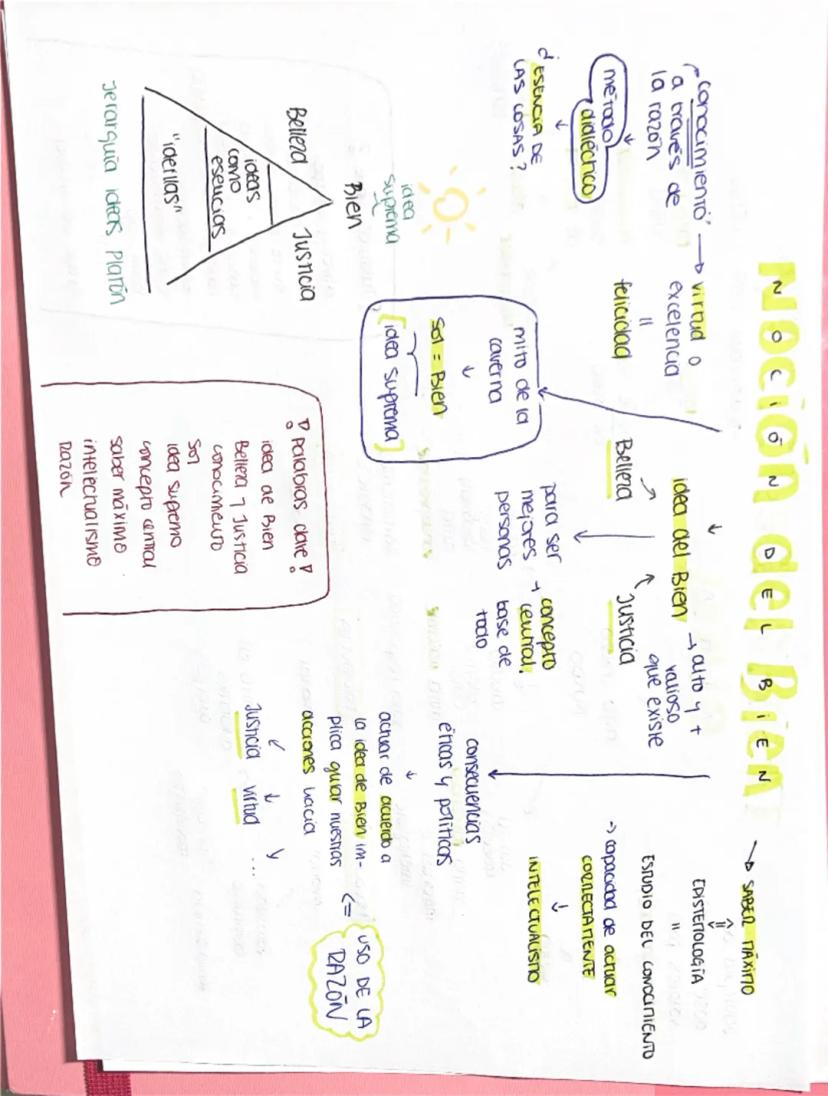 Noción del Bien
NOCIÓN DEL BIEN
"conocimiento" → virtud o
a través de
la razón
excelencia
=
felicidad
método
dialéctico
¿ESENCIA DE
LAS COSAS?
idea del Bien → alto y +
valioso
que existe
Belleza
Justicia
para ser
mejores
personas
→ concepto
central,
base de
todo
mito de la
caverna
Sol = Bien
[idea suprema]
→ SABER MÁXIMO
=
EPISTEMOLOGÍA
=
ESTUDIO DEL CONOCIMIENTO
→ capacidad de actuar
CORRECTAMENTE
INTELECTUALISMO
consecuencias
éticas y políticas
actuar de acuerdo a
la idea de Bien im-
plica guiar nuestras
acciones hacia
Justicia virtud y ...
<= USO DE LA
RAZÓN
idea
suprema
Bien
Belleza
Justicia
ideas
como
esencias
"ideillas"
Jerarquía ideas Platón
¡Palabras clave!
idea de Bien
Belleza y Justicia
conocimiento
Sol
idea suprema
concepto central
saber máximo
intelectualismo
razón